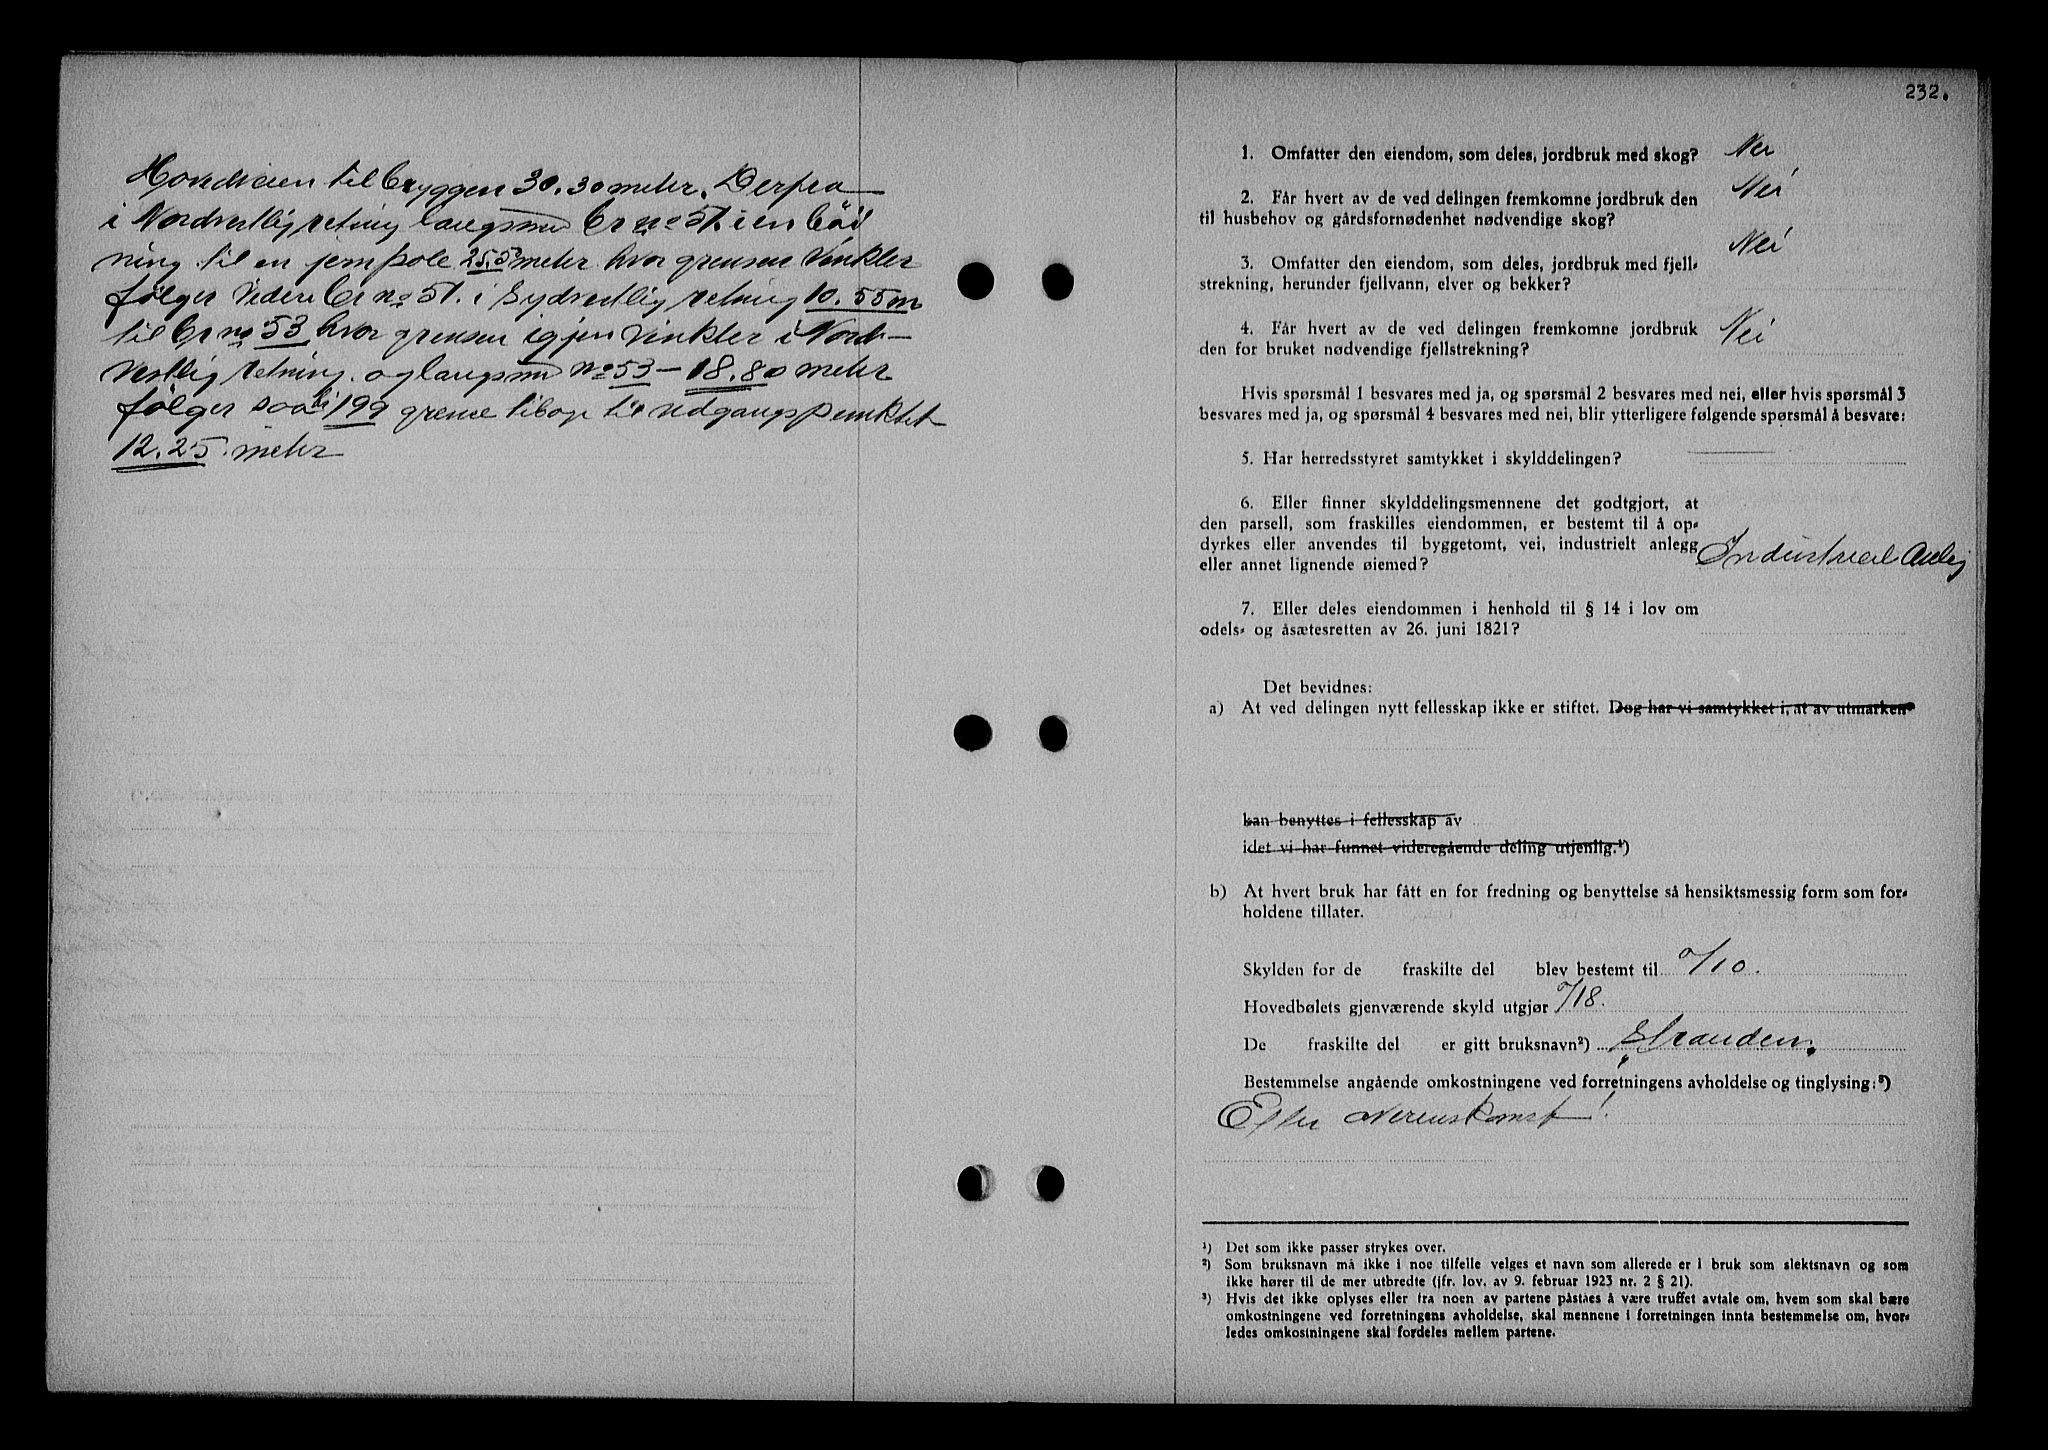 Hovedveien til bryggen 30.30 meter. Derfra
i Nordvestlig retning langsmed Br no 51. i en bøi
ning til en jernpole 25.5 meter hvor grensen Vinkler
følger videre Br no 51. i Sydvestlig retning 10.55 m
til Br no 53 hvor grensen igjen Vinkler i Nord-
vestlig retning. og langsmed no 53 - 18.80 meter
følger saa 199 grense tilbage til udgangspunktet
12.25. meter
232.
1. Omfatter den eiendom, som deles, jordbruk med skog? Nei
2. Får hvert av de ved delingen fremkomne jordbruk den Nei
til husbehov og gårdsfornødenhet nødvendige skog?
3. Omfatter den eiendom, som deles, jordbruk med fjell- Nei
strekning, herunder fjellvann, elver og bekker?
4. Får hvert av de ved delingen fremkomne jordbruk Nei
den for bruket nødvendige fjellstrekning?
Hvis spørsmål 1 besvares med ja, og spørsmål 2 besvares med nei, eller hvis spørsmål 3
besvares med ja, og spørsmål 4 besvares med nei, blir ytterligere følgende spørsmål å besvare:
5. Har herredsstyret samtykket i skylddelingen?
6. Eller finner skylddelingsmennene det godtgjort, at
den parsell, som fraskilles eiendommen, er bestemt til å op-
dyrkes eller anvendes til byggetomt, vei, industrielt anlegg Industrielt Anleg
eller annet lignende øiemed?
7. Eller deles eiendommen i henhold til § 14 i lov om
odels- og åsætesretten av 26. juni 1821?
Det bevidnes:
a) At ved delingen nytt fellesskap ikke er stiftet. Dog har vi samtykket i, at av utmarken
kan benyttes i fellesskap av
idet vi har funnet videregående deling utjenlig.¹)
b) At hvert bruk har fått en for fredning og benyttelse så hensiktsmessig form som for-
holdene tillater.
Skylden for de fraskilte del blev bestemt til 0/10.
Hovedbølets gjenværende skyld utgjør 0/18.
De fraskilte del er gitt bruksnavn²) „Stranden„
Bestemmelse angående omkostningene ved forretningens avholdelse og tinglysing:³)
Efter Overenskomst!
¹) Det som ikke passer strykes over.
²) Som bruksnavn må ikke i noe tilfelle velges et navn som allerede er i bruk som slektsnavn og som
ikke hører til de mer utbredte (jfr. lov. av 9. februar 1923 nr. 2 § 21).
³) Hvis det ikke oplyses eller fra noen av partene påståes å være truffet avtale om, hvem som skal bære
omkostningene ved forretningens avholdelse, skal mennene i forretningen innta bestemmelse om, hvor-
ledes omkostningene skal fordeles mellem partene.